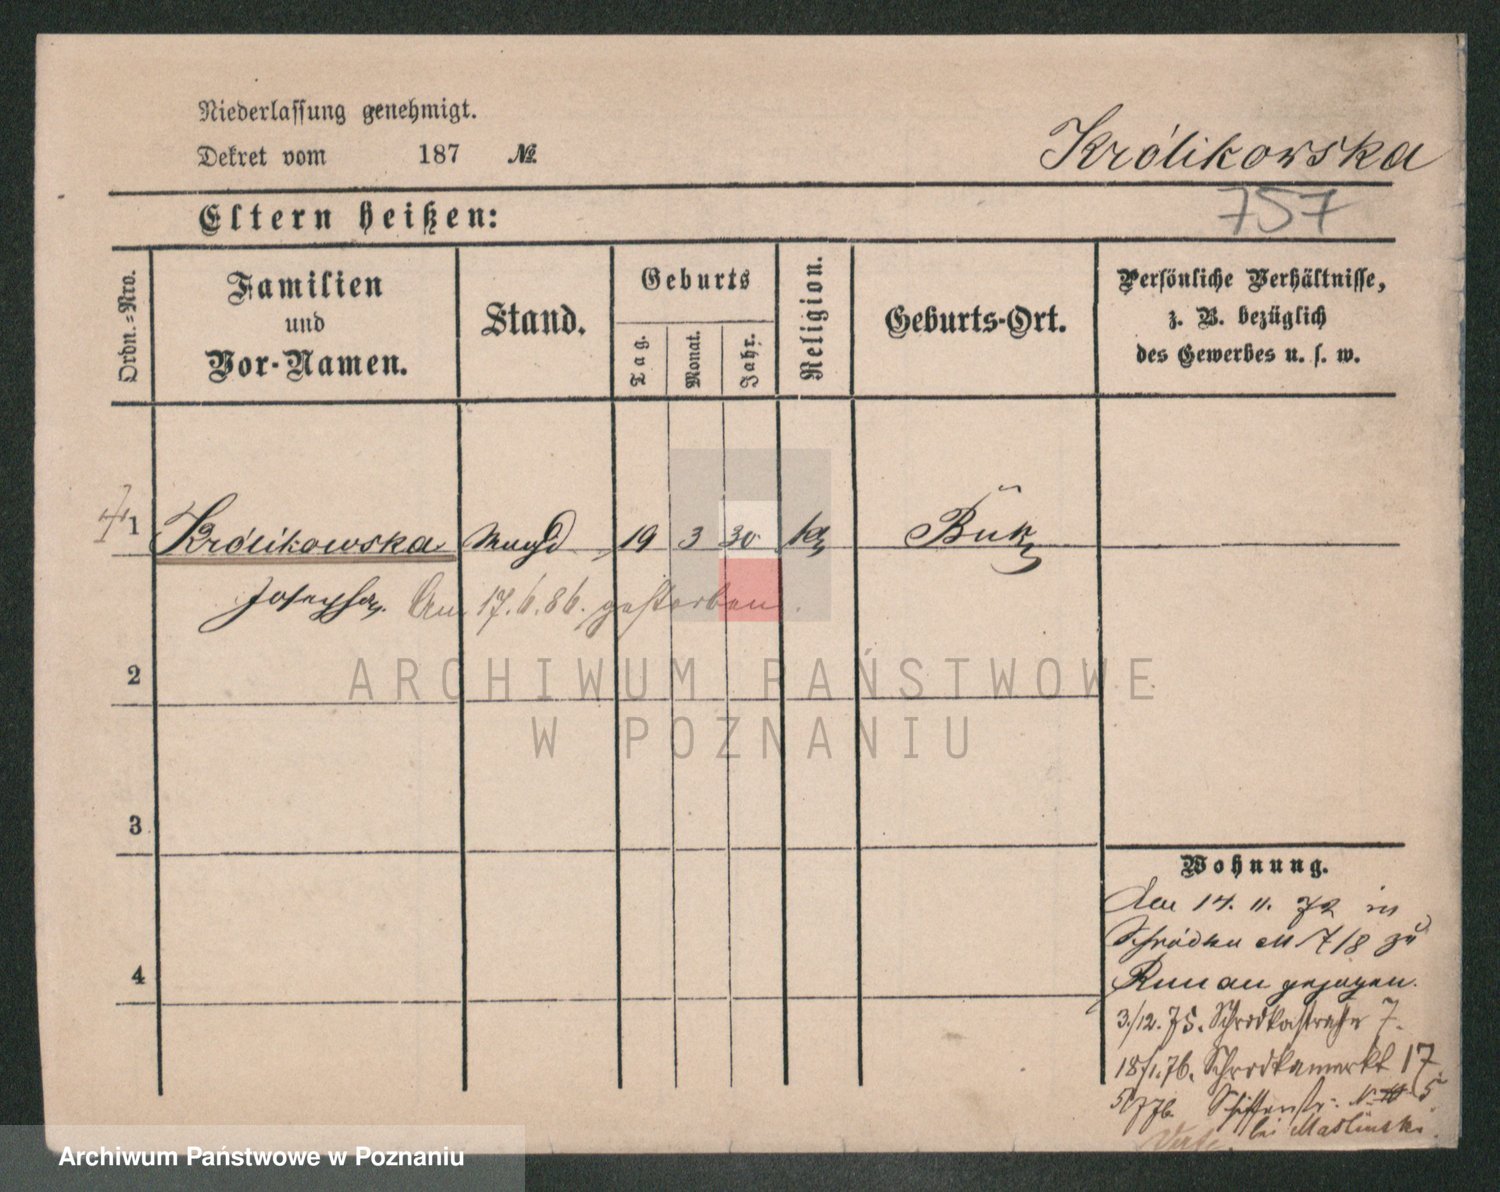 Niederlassung genehmigt.
Dekret vom 187 №
Królikowska
757
Eltern heißen:
Ordn.=Nro.
Familien
und
Vor-Namen.
Stand.
Geburts
Tag.
Monat.
Jahr.
Religion.
Geburts-Ort.
Persönliche Verhältnisse,
z. B. bezüglich
des Gewerbes u. s. w.
1 Królikowska Magd 19 3 30 ka Buk
Josepha. Am 17.6.86. gestorben.
2
ARCHIWUM PAŃSTWOWE
W POZNANIU
3
4
Wohnung.
Am 14. 11. 72 in
Schrodka 7/8 zu
gezogen.
3/12.75. Schrodkastraße 7.
18/1.76. Schrodkamarkt 17
5
bei Maslinski.
Archiwum Państwowe w Poznaniu